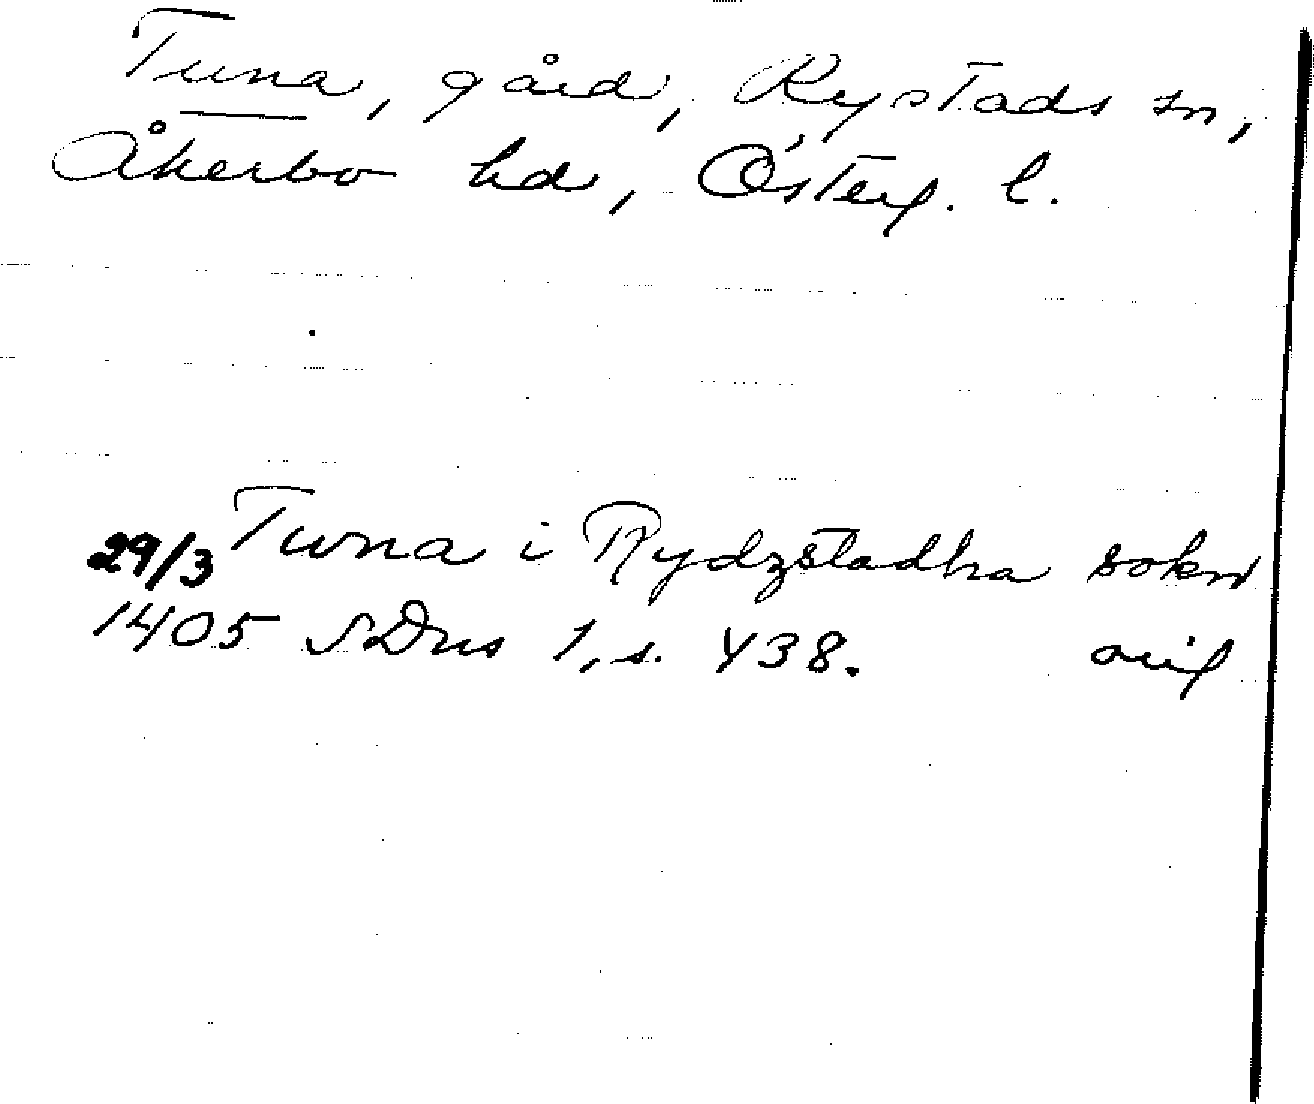 Tuna, gård, Rystads sn,
Åkerbo hd, Österg. l.
29/3 Tuna i Rydzstadha sokn
1405 SDns 1, s. 438. orig